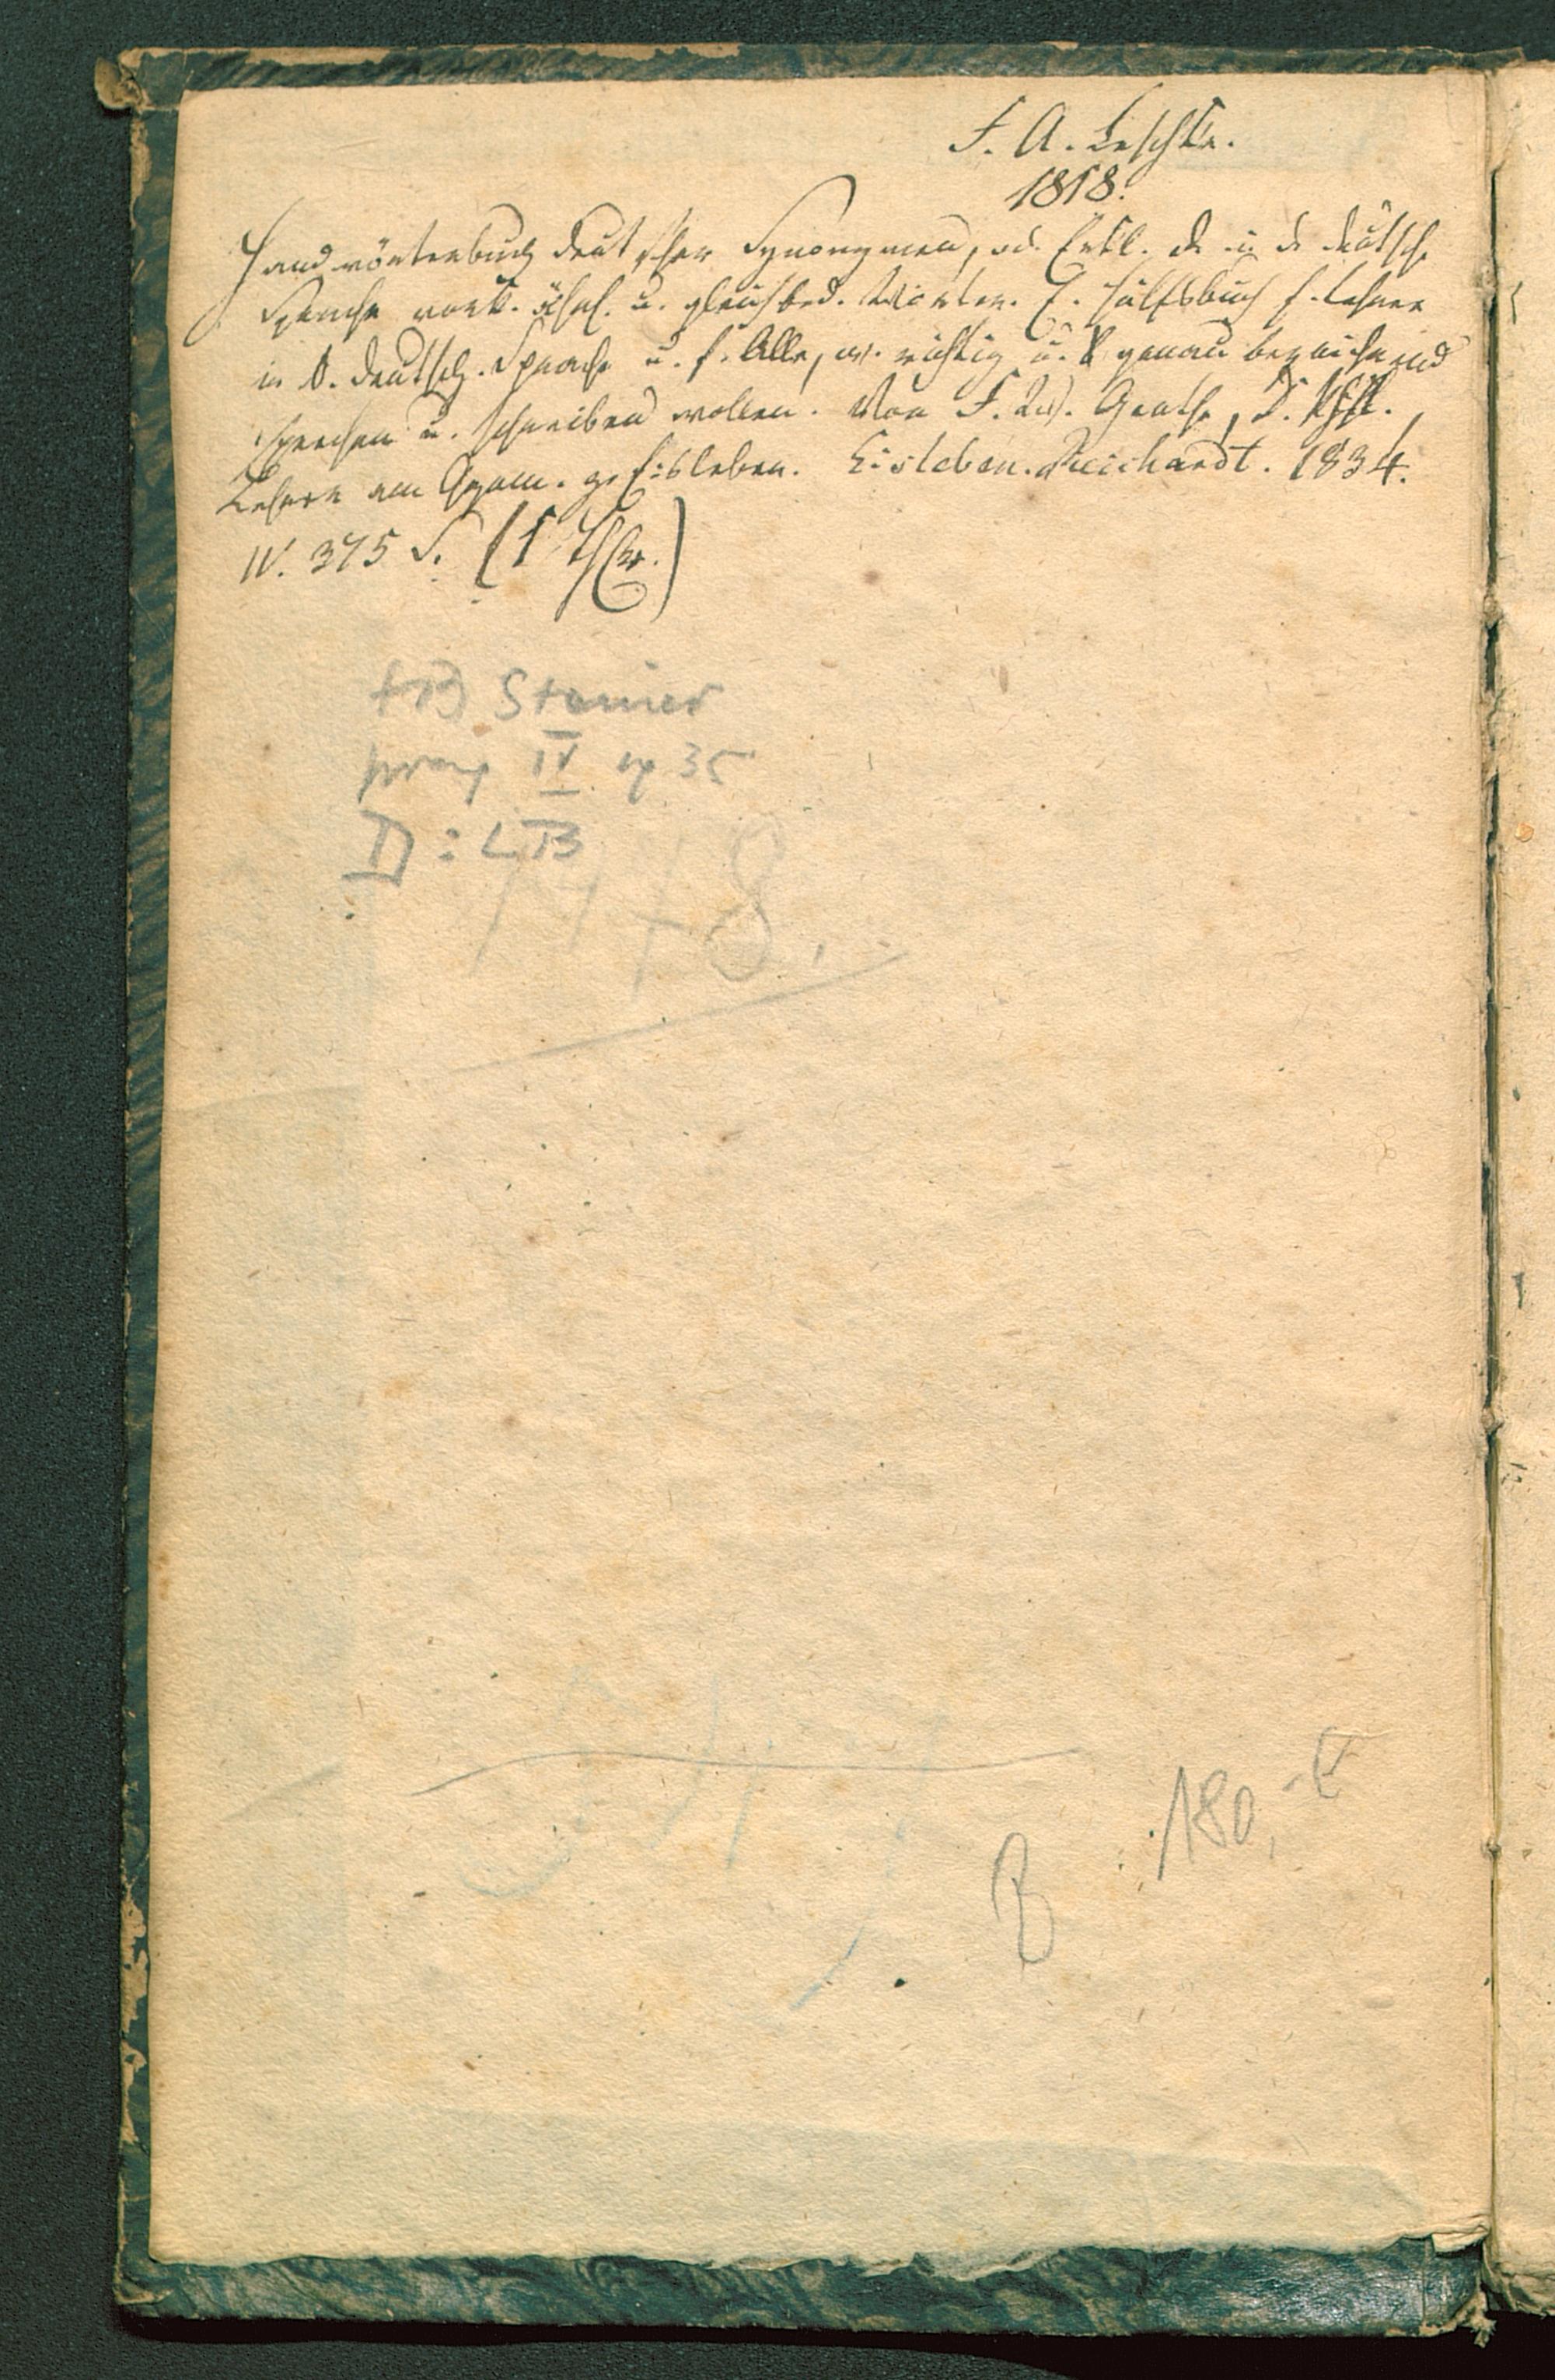 F. A. Leschke.
1818.
Handwörterbuch deutscher Synonymen, od. Erkl. d. in d. deutsch.
Sprache vork. ähnl. u. gleichbed. Wörter. E. Hülfsbuch f. Lehrer
in d. deutsch. Sprache u. f. Alle, w. richtig u. genau bezeichnend
sprechen u. schreiben wollen. Von F. W. Genthe, D. Phil.,
Lehrer am Gymn. zu Eisleben. Eisleben. Reichardt. 1834.
IV. 375 S. (1 Thlr.)
IV 35
D: LB
8.
B 180,-